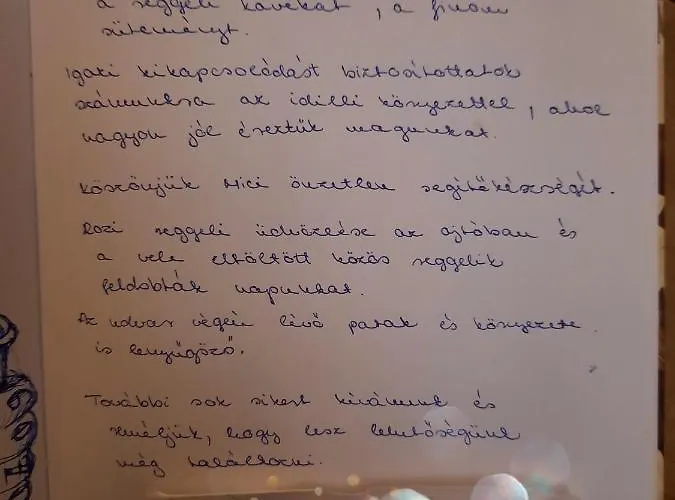 a reggeli kávékat, a finom
süteményt.
Igazi kikapcsolódást biztosítottatok
számunkra az idilli környezettel, ahol
nagyon jól éreztük magunkat.
Köszönjük Mici önzetlen segítőkészségét.
Rozi reggeli üdvözlése az ajtóban és
a vele eltöltött közös reggelik
feldobták napunkat.
Az udvar végén lévő patak és környezete
is lenyűgöző.
További sok sikert kívánunk és
reméljük, hogy lesz lehetőségünk
még találkozni.